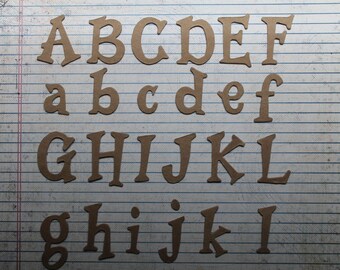 ABCDEF
abcdef
GHIJKL
ghijkl